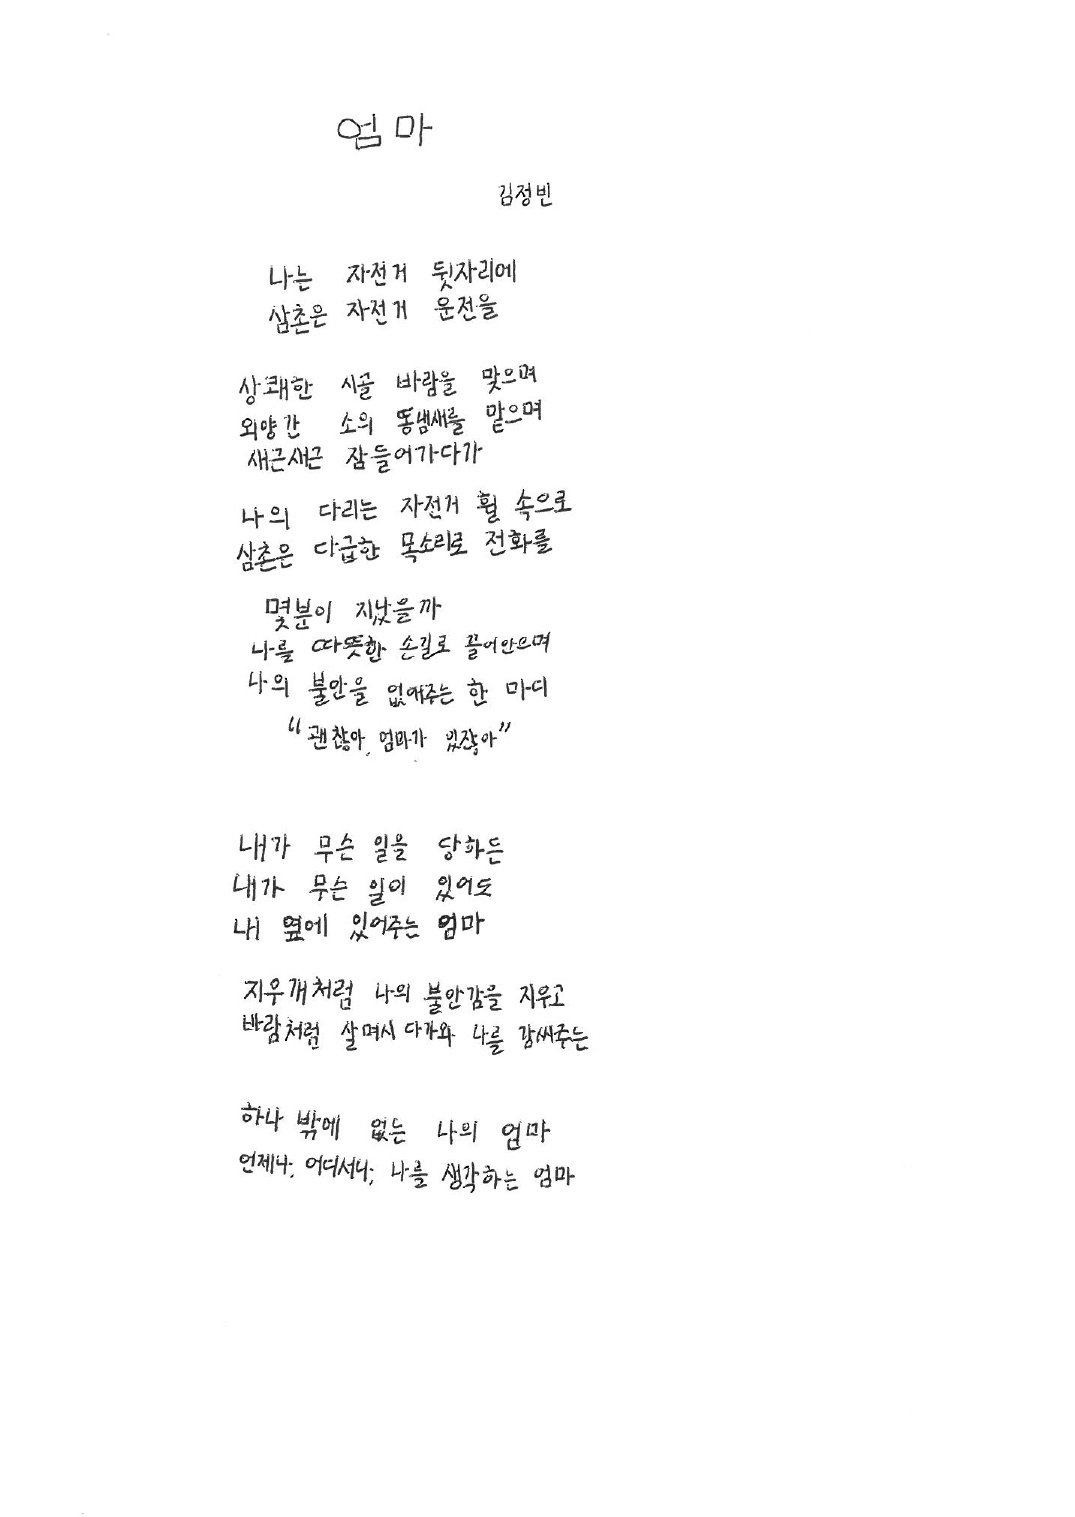 엄마
김정빈
나는 자전거 뒷자리에
삼촌은 자전거 운전을
상쾌한 시골 바람을 맞으며
외양간 소의 똥냄새를 맡으며
새근새근 잠들어가다가
나의 다리는 자전거 휠 속으로
삼촌은 다급한 목소리로 전화를
몇분이 지났을까
나를 따뜻한 손길로 끌어안으며
나의 불안을 없애주는 한 마디
“괜찮아, 엄마가 있잖아”
내가 무슨 일을 당하든
내가 무슨 일이 있어도
내 옆에 있어주는 엄마
지우개처럼 나의 불안감을 지우고
바람처럼 살며시 다가와 나를 감싸주는
하나 밖에 없는 나의 엄마
언제나, 어디서나, 나를 생각하는 엄마